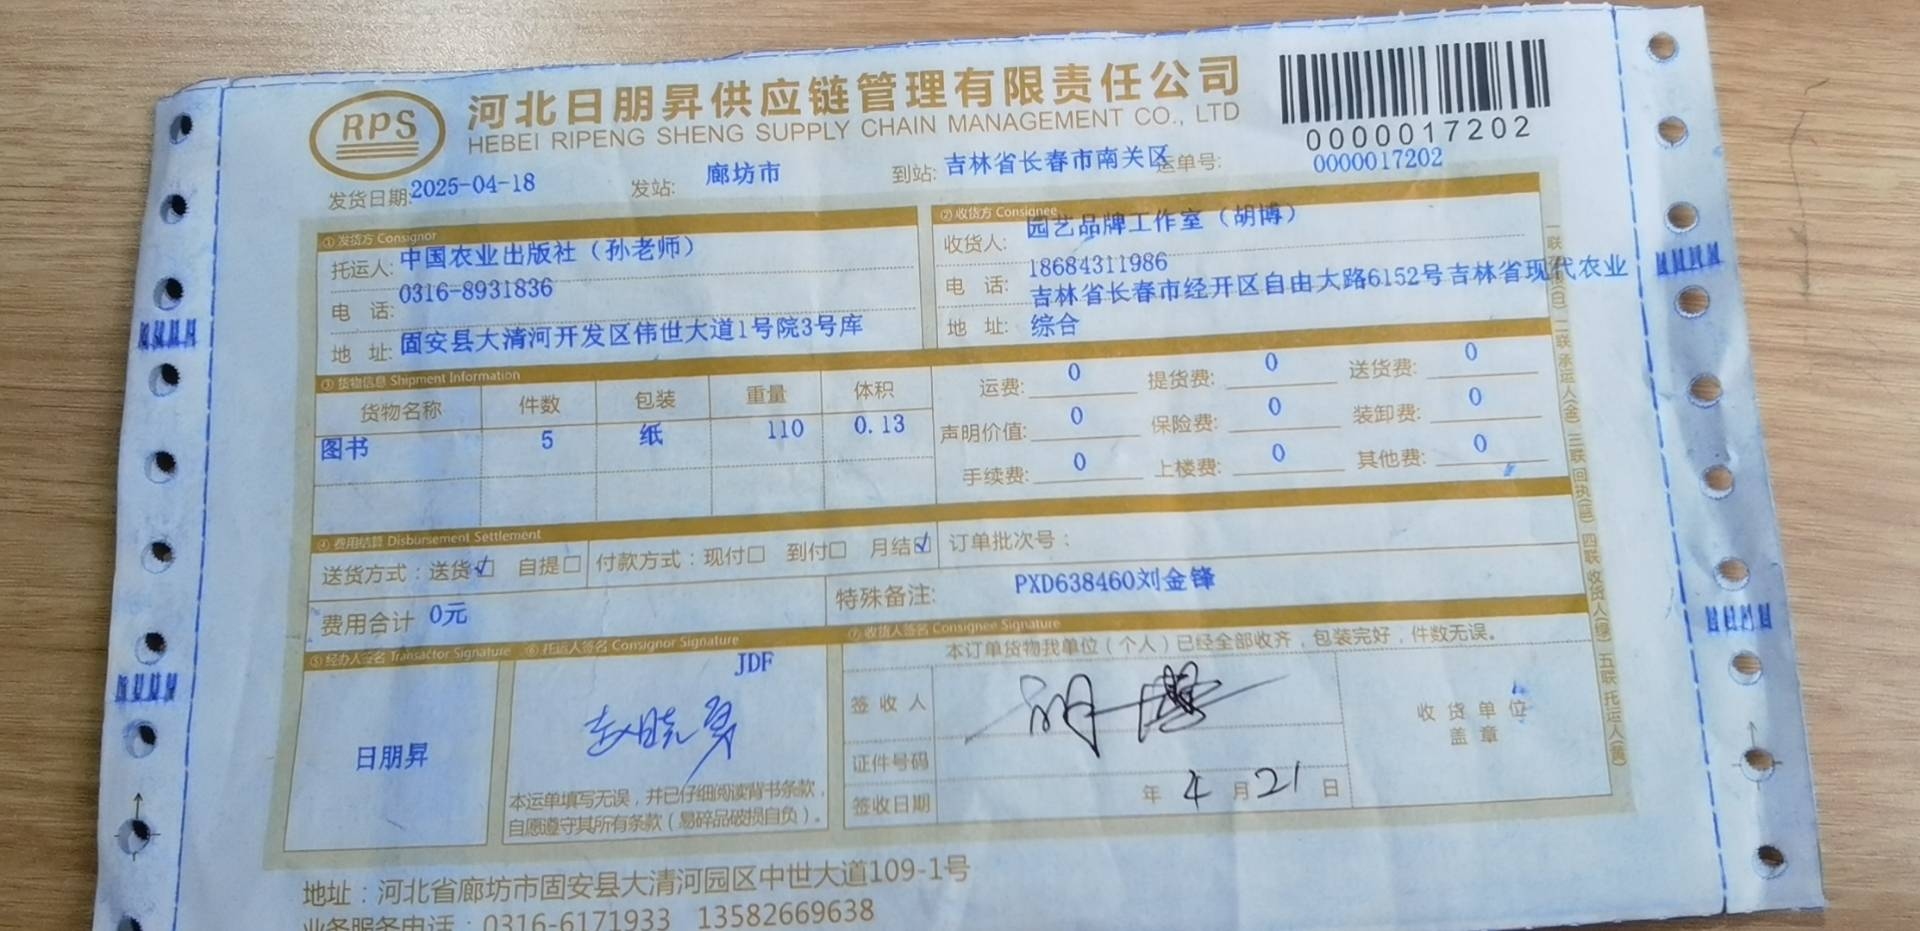 RPS
河北日朋昇供应链管理有限责任公司
HEBEI RIPENG SHENG SUPPLY CHAIN MANAGEMENT CO., LTD
0000017202
发货日期:2025-04-18 发站: 廊坊市 到站: 吉林省长春市南关区 运单号: 0000017202
① 发货方 Consignor
托运人: 中国农业出版社（孙老师）
电 话: 0316-8931836
地 址: 固安县大清河开发区伟世大道1号院3号库
② 收货方 Consignee
收货人: 园艺品牌工作室（胡博）
电 话: 18684311986
地 址: 吉林省长春市经开区自由大路6152号吉林省现代农业
综合
③ 货物信息 Shipment Information
货物名称 件数 包装 重量 体积
图书 5 纸 110 0.13
运费: 0 提货费: 0 送货费: 0
声明价值: 0 保险费: 0 装卸费: 0
手续费: 0 上楼费: 0 其他费: 0
④ 费用结算 Disbursement Settlement
送货方式：送货☑ 自提□ 付款方式：现付□ 到付□ 月结☑ 订单批次号：
费用合计 0元 特殊备注: PXD638460刘金锋
⑤ 经办人签名 Transactor Signature
日朋昇
⑥ 托运人签名 Consignor Signature
JDF
本运单填写无误，并已仔细阅读背书条款，
自愿遵守其所有条款（易碎品破损自负）。
⑦ 收货人签名 Consignee Signature
本订单货物我单位（个人）已经全部收齐，包装完好，件数无误。
签 收 人
证件号码
签收日期 年 4 月 21 日
收 货 单 位
盖 章
二联 承运人(金) 三联 回执(蓝) 四联 收货人(绿) 五联 托运人(黄)
地址：河北省廊坊市固安县大清河园区中世大道109-1号
业务服务电话：0316-6171933 13582669638